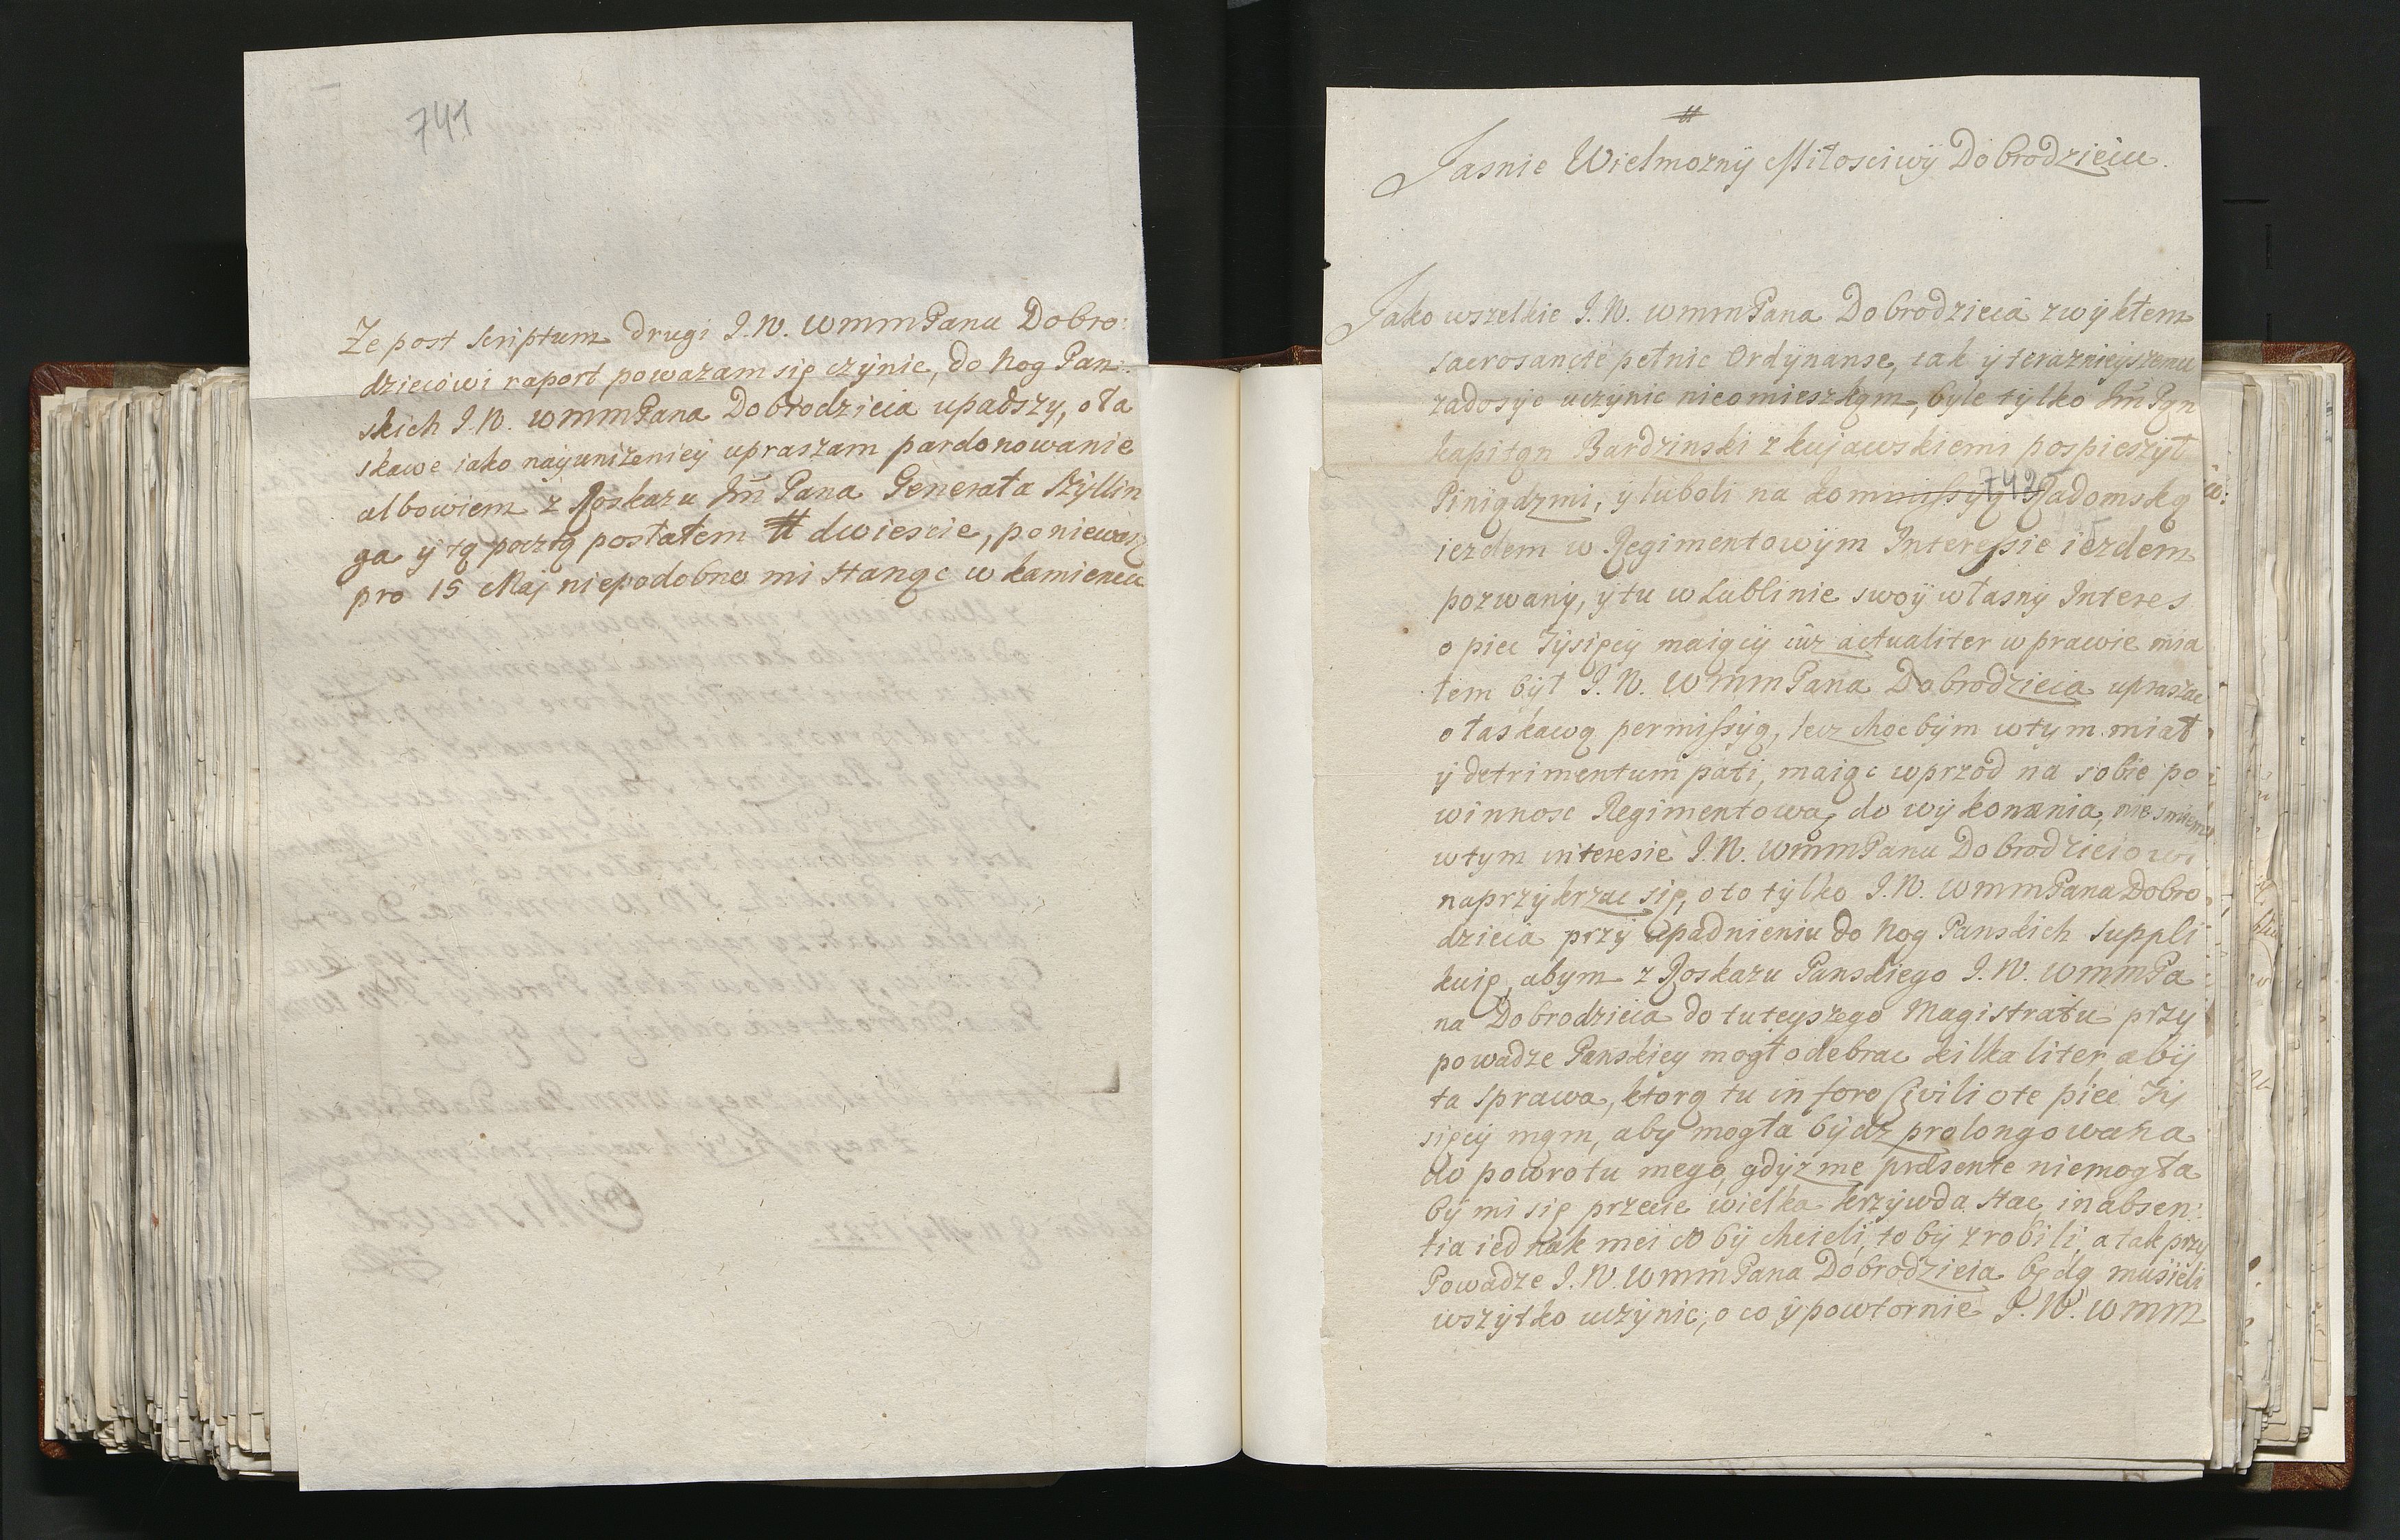 741
Ze post scriptum drugi J. W. WmmPanu Dobro:
dzieiowi raport powazam się czÿnic, do Nog Pan:
skich J. W. WmmPana Dobrodzieia upadszy, o ła
skawe iako nayuniżenieÿ upraszam pardonowanie
albowiem z Roskazu Jm̃ Pana Generała Szÿllin
ga ÿ tą pocztą posłałem # dwiescie, poniewasz
pro 15 Maj niepodobno mi stanąc w kamiencu
#
Jasnie Wielmoznÿ Miłosciwÿ Dobrodzieiu.
Jako wszelkie J. W. WmmPana Dobrodzieia zwÿkłem
sacrosancte pełnic Ordÿnanse, tak y teraznieÿszemu
zadosÿc uczÿnic nieomieszkąm, bÿle tÿlko Jm̃ Pąn
kapitąn Bardzinski z kujawskiemi pospieszÿł
Piniądzmi, ÿ luboli na kommissyą Radomską
742
iezdem w Regimentowÿm Interessie iezdem
pozwanÿ, ÿ tu w Lublinie swoÿ własnÿ Interes
o piec Tÿsięcÿ maiącÿ iuz actualiter w prawie mia
łem bÿł J. W. WmmPana Dobrodzieia upraszac
o łaskawą permissÿą, lecz chocbÿm w tym miał
ÿ detrimentum pati, maiąc wprzod na sobie po
winnosc Regimentową do wÿkonania, nie smiem
w tym interesie J. W. WmmPanu Dobrodzieiowi
naprzÿkrzac się, oto tÿlko J. W. WmmPana Dobro
dzieia przÿ upadnieniu do Nog Panskich suppli
kuię, abym z Roskazu Panskiego J. W. WmmPa
na Dobrodzieia do tuteyszego Magistratu przy
powadze Panskiey mogł odebrac kilka liter, abÿ
ta sprawa, ktorą tu in foro Civili o te piec Tÿ
sięcÿ mąm, aby mogła bÿdz prolongowana
do powrotu mego, gdÿz me præsente niemogła
bÿ mi się przecie wielka krzÿwda stac, in absen:
tia iednak mei co bÿ chcieli, to bÿ zrobili, a tak przy
Powadze J. W. WmmPana Dobrodzieia będą musieli
wszÿtko uczÿnic, o co ÿ powtornie J. W. Wmm